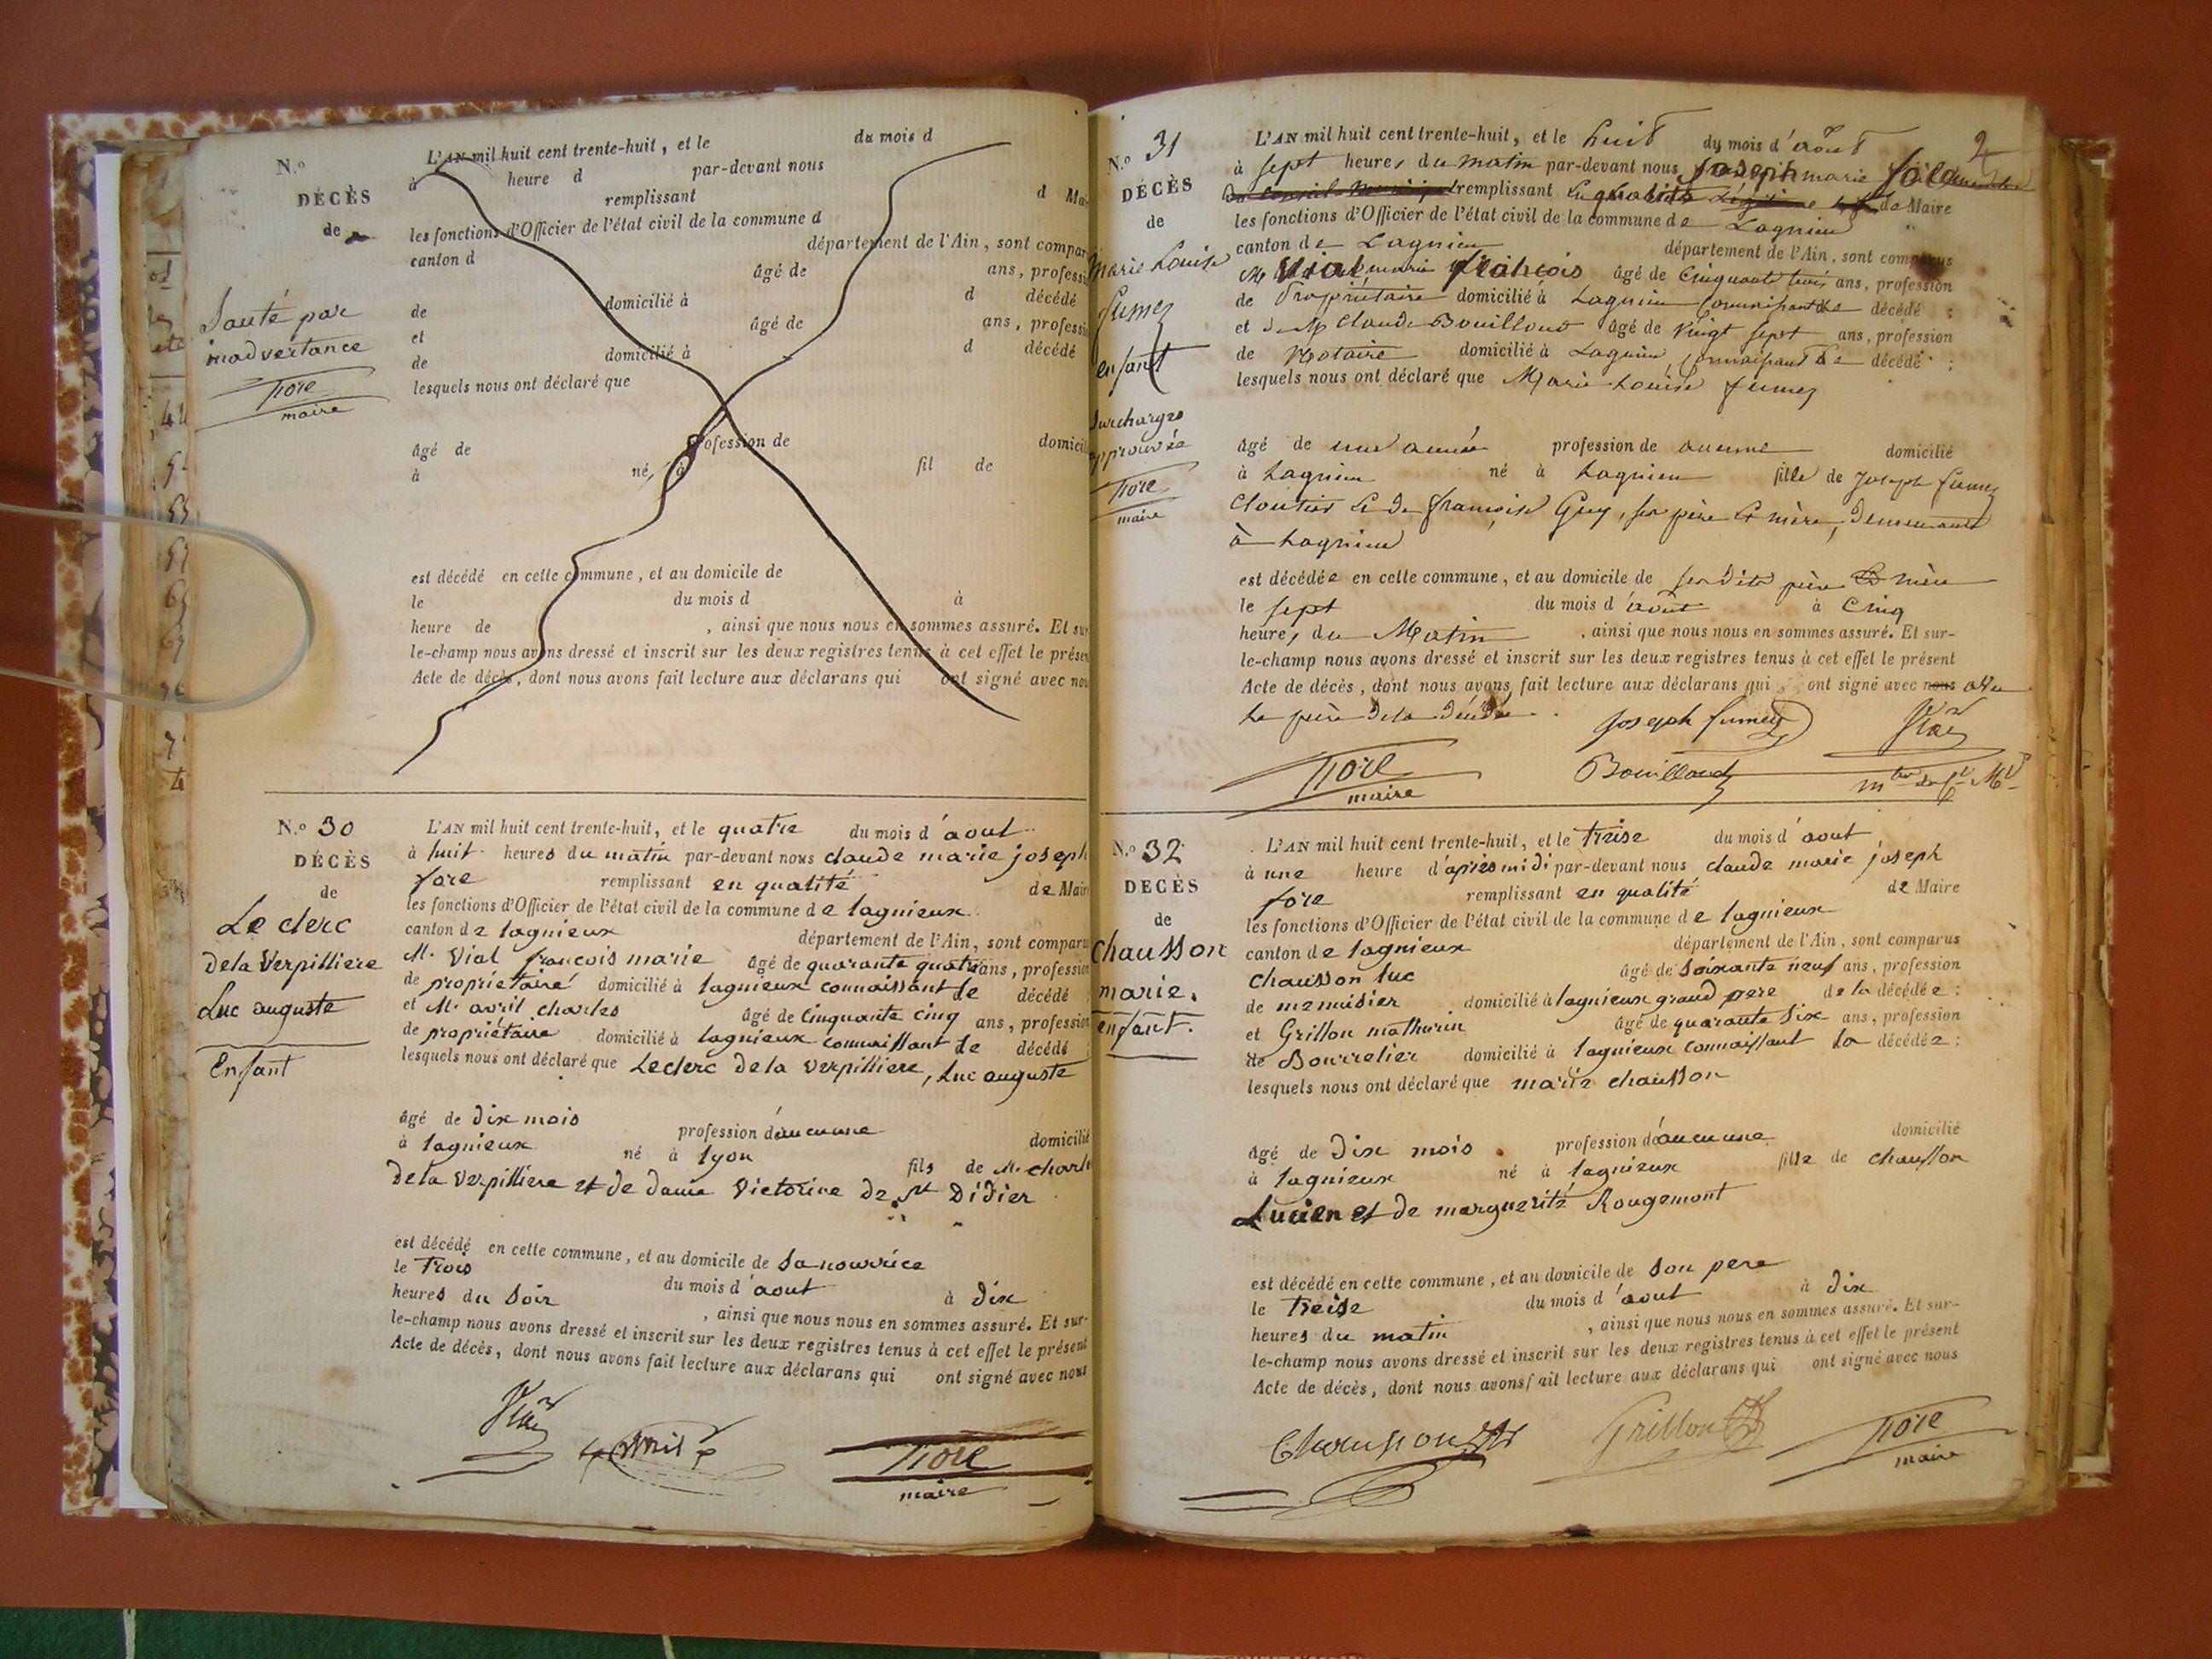 N.o
DÉCÈS
de
Sauté par
inadvertance
fore
maire
L'AN mil huit cent trente-huit, et le du mois d
à heure d par-devant nous
remplissant d Mai
les fonctions d'Officier de l'état civil de la commune d
canton d département de l'Ain, sont compar
âgé de ans, professi
de domicilié à d décédé
et âgé de ans, professi
de domicilié à d décédé
lesquels nous ont déclaré que
âgé de profession de domici
à né, à fil de
est décédé en cette commune, et au domicile de
le du mois d à
heure de , ainsi que nous nous en sommes assuré. Et sur
le-champ nous avons dressé et inscrit sur les deux registres tenus à cet effet le présen
Acte de décès, dont nous avons fait lecture aux déclarans qui ont signé avec nou
N.o 30
DÉCÈS
de
Leclerc
dela Verpilliere
Luc auguste
Enfant
L'AN mil huit cent trente-huit, et le quatre du mois d'aout
à huit heures du matin par-devant nous claude marie joseph
fore remplissant en qualité de Maire
les fonctions d'Officier de l'état civil de la commune de lagnieux
canton de lagnieux département de l'Ain, sont comparu
M. Vial francois marie âgé de quarante quatre ans, profession
de propriétaire domicilié à lagnieux connaissant le décédé
et M. avril charles âgé de Cinquante cinq ans, profession
de propriétaire domicilié à lagnieux connaissant le décédé
lesquels nous ont déclaré que Leclerc dela verpilliere, Luc auguste
âgé de dix mois profession d'aucune domicilié
à lagnieux né à lyon fils de M. charle
dela Verpilliere et de dame Victorine de St Didier
est décédé en cette commune, et au domicile de sa nourrice
le Trois du mois d'aout à dix
heures du soir , ainsi que nous nous en sommes assuré. Et sur-
le-champ nous avons dressé et inscrit sur les deux registres tenus à cet effet le présent
Acte de décès, dont nous avons fait lecture aux déclarans qui ont signé avec nous
Vial
avril
fore
maire
2
N.o 31
DÉCÈS
de
Marie Louise
fumez
enfant
Surcharges
approuvée
fore
maire
L'AN mil huit cent trente-huit, et le huit du mois d'août
à sept heures du matin par-devant nous joseph marie
remplissant de Maire
les fonctions d'Officier de l'état civil de la commune de Lagnieu
canton de Lagnieu département de l'Ain, sont comparus
M Vial marie françois âgé de cinquante trois ans, profession
de Propriétaire domicilié à Lagnieu connaissant de décédé ;
et de M Claude Bouilloud âgé de vingt sept ans, profession
de Notaire domicilié à Lagnieu connaissant de décédé ;
lesquels nous ont déclaré que Marie Louise fumez
âgé de une année profession de aucune domicilié
à Lagnieu né à Lagnieu fille de Joseph fumez
Cloutier & de françoise Guy, ses père & mère, demeurant
à Lagnieu
est décédée en cette commune, et au domicile de ses dits père & mère
le sept du mois d'août à Cinq
heures du Matin , ainsi que nous nous en sommes assuré. Et sur-
le-champ nous avons dressé et inscrit sur les deux registres tenus à cet effet le présent
Acte de décès, dont nous avons fait lecture aux déclarans qui ont signé avec nous
Le père de la
Joseph fumez
Vial
fore
maire
Bouilloud
N.o 32
DÉCÈS
de
chausson
marie.
enfant.
L'AN mil huit cent trente-huit, et le treise du mois d'aout
à une heure d'après midi par-devant nous claude marie joseph
fore remplissant en qualité de Maire
les fonctions d'Officier de l'état civil de la commune de lagnieux
canton de lagnieux département de l'Ain, sont comparus
chausson luc âgé de soixante neuf ans, profession
de menuisier domicilié à lagnieux grand pere de la décédée ;
et Grillon mathurin âgé de quarante six ans, profession
de Bourrelier domicilié à lagnieux connaissant la décédée ;
lesquels nous ont déclaré que marie chausson
âgé de dix mois profession d'aucune domicilié
à lagnieux né à lagnieux fille de chausson
Lucien et de marguerite Rougemont
est décédé en cette commune, et au domicile de son pere
le treise du mois d'aout à dix
heures du matin , ainsi que nous nous en sommes assuré. Et sur-
le-champ nous avons dressé et inscrit sur les deux registres tenus à cet effet le présent
Acte de décès, dont nous avons fait lecture aux déclarans qui ont signé avec nous
Chausson
Grillon
fore
maire